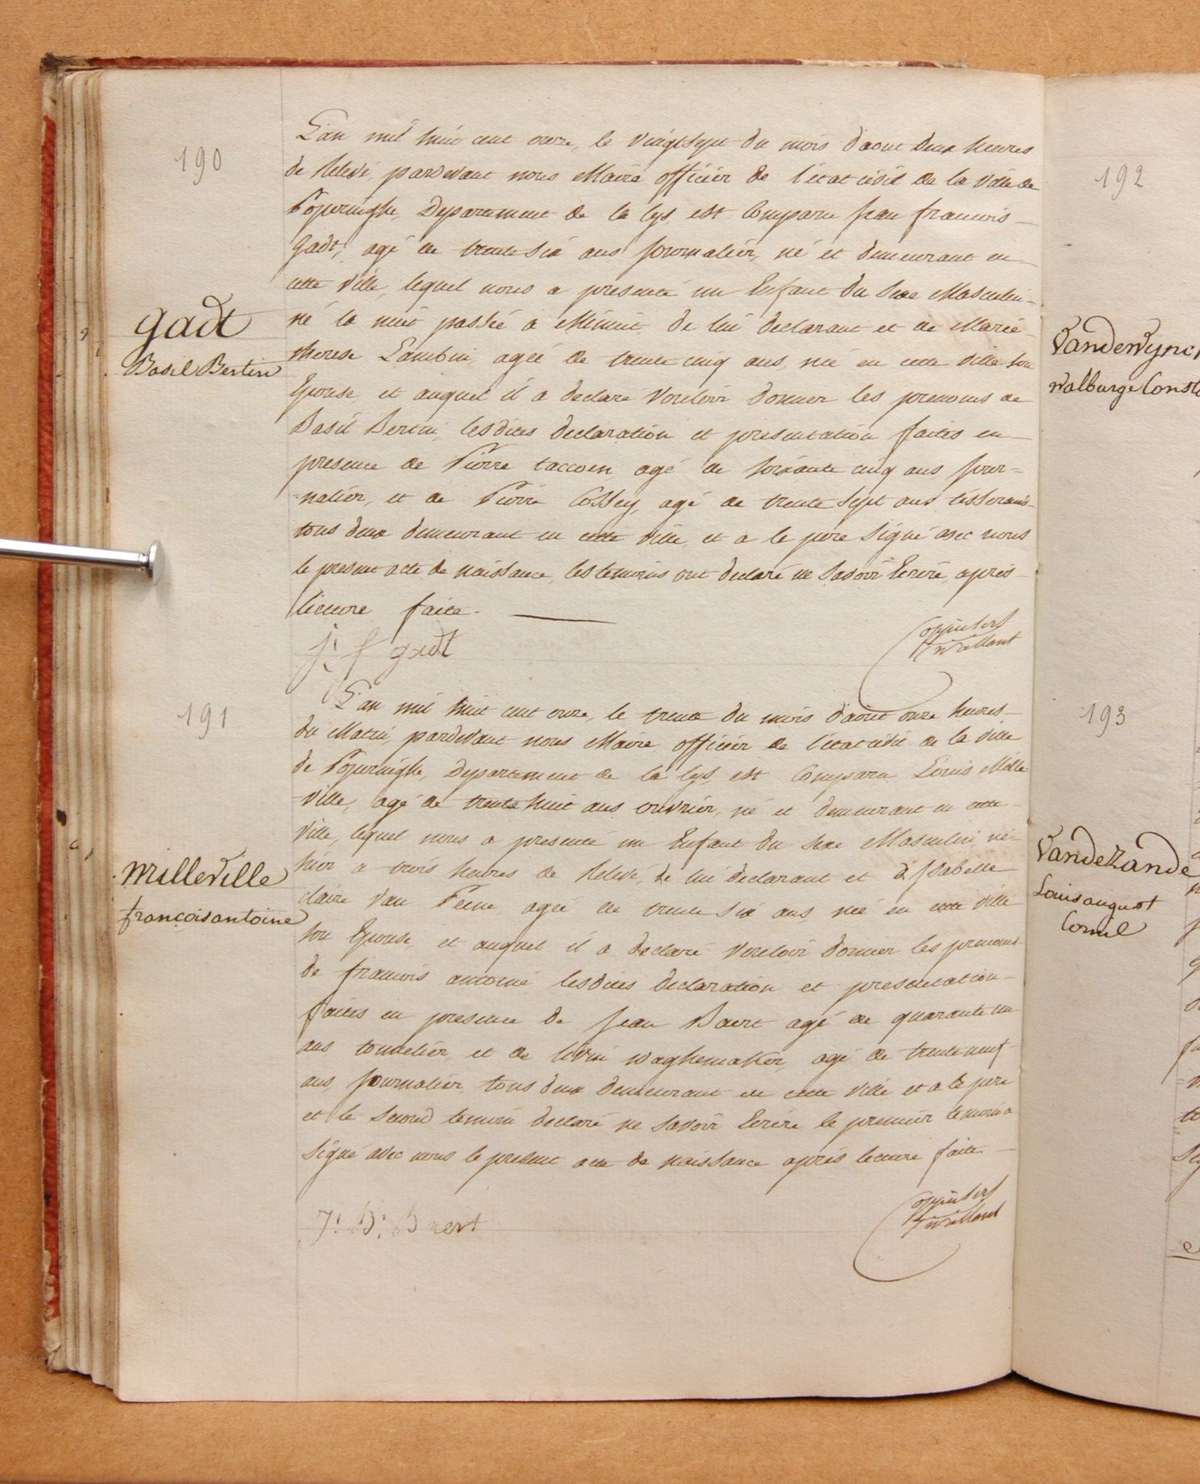 190
gadt
Basil Bertin
L'an mil huit cent onze, le vingtsept du mois d'aout deux heures
de Relevé, pardevant nous Maire officier de l'état civil de la ville de
Poperinghe, Departement de la Lys est Comparu Jean francois
Gadt, agé de trente six ans Journalier, né et demeurant en
cette ville, lequel nous a presenté un Enfant du Sexe Masculin
né la nuit passée a Minuit de lui declarant et de Marie
therese Lambin, agée de trente cinq ans, née en cette ville son
Epouse et auquel il a declaré vouloir donner les prenoms de
Basil Bertin, lesdites declaration et presentation faites en
presence de Pierre taccoen agé de soixante cinq ans jour=
=nalier, et de Pierre Cossey, agé de trente sept ans tisserand
tous deux demeurant en cette ville et a le pere signé avec nous
le present acte de naissance, les temoins ont declaré ne savoir Ecrire, après
lecture faite.
j: f gadt
191
Milleville
françois antoine
L'an mil huit cent onze, le trente du mois d'aout onze heures
du Matin, pardevant nous Maire officier de l'état civil de la ville
de Poperinghe, Departement de la Lys, est Comparu Louis Mille
ville, agé de trente huit ans ouvrier, né et demeurant en cette
ville, lequel nous a presenté un Enfant du Sexe Masculin, né
hier a trois heures de Relevé, de lui declarant et d'Isabelle
claire Van agée de trente six ans née en cette ville
son Epouse et auquel il a declaré vouloir donner les prenoms
de francois antoine lesdites declaration et presentation
faites en presence de Jean Baert agé de quarante un
ans tonnelier, et de Livin waghemaker, agé de trente neuf
ans, Journalier tous deux demeurant en cette ville et a le pere
et le second temoin declaré ne savoir Ecrire le premier temoin a
signé avec nous le present acte de naissance après lecture faite
J: B: Baert
192
Vanderwync
walburge Const
193
Vandezande
Louis august
Cornil